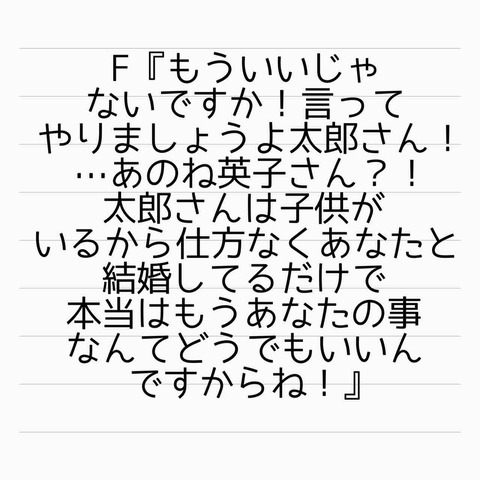 F『もういいじゃ
ないですか！言って
やりましょうよ太郎さん！
…あのね英子さん？！
太郎さんは子供が
いるから仕方なくあなたと
結婚してるだけで
本当はもうあなたの事
なんてどうでもいいん
ですからね！』